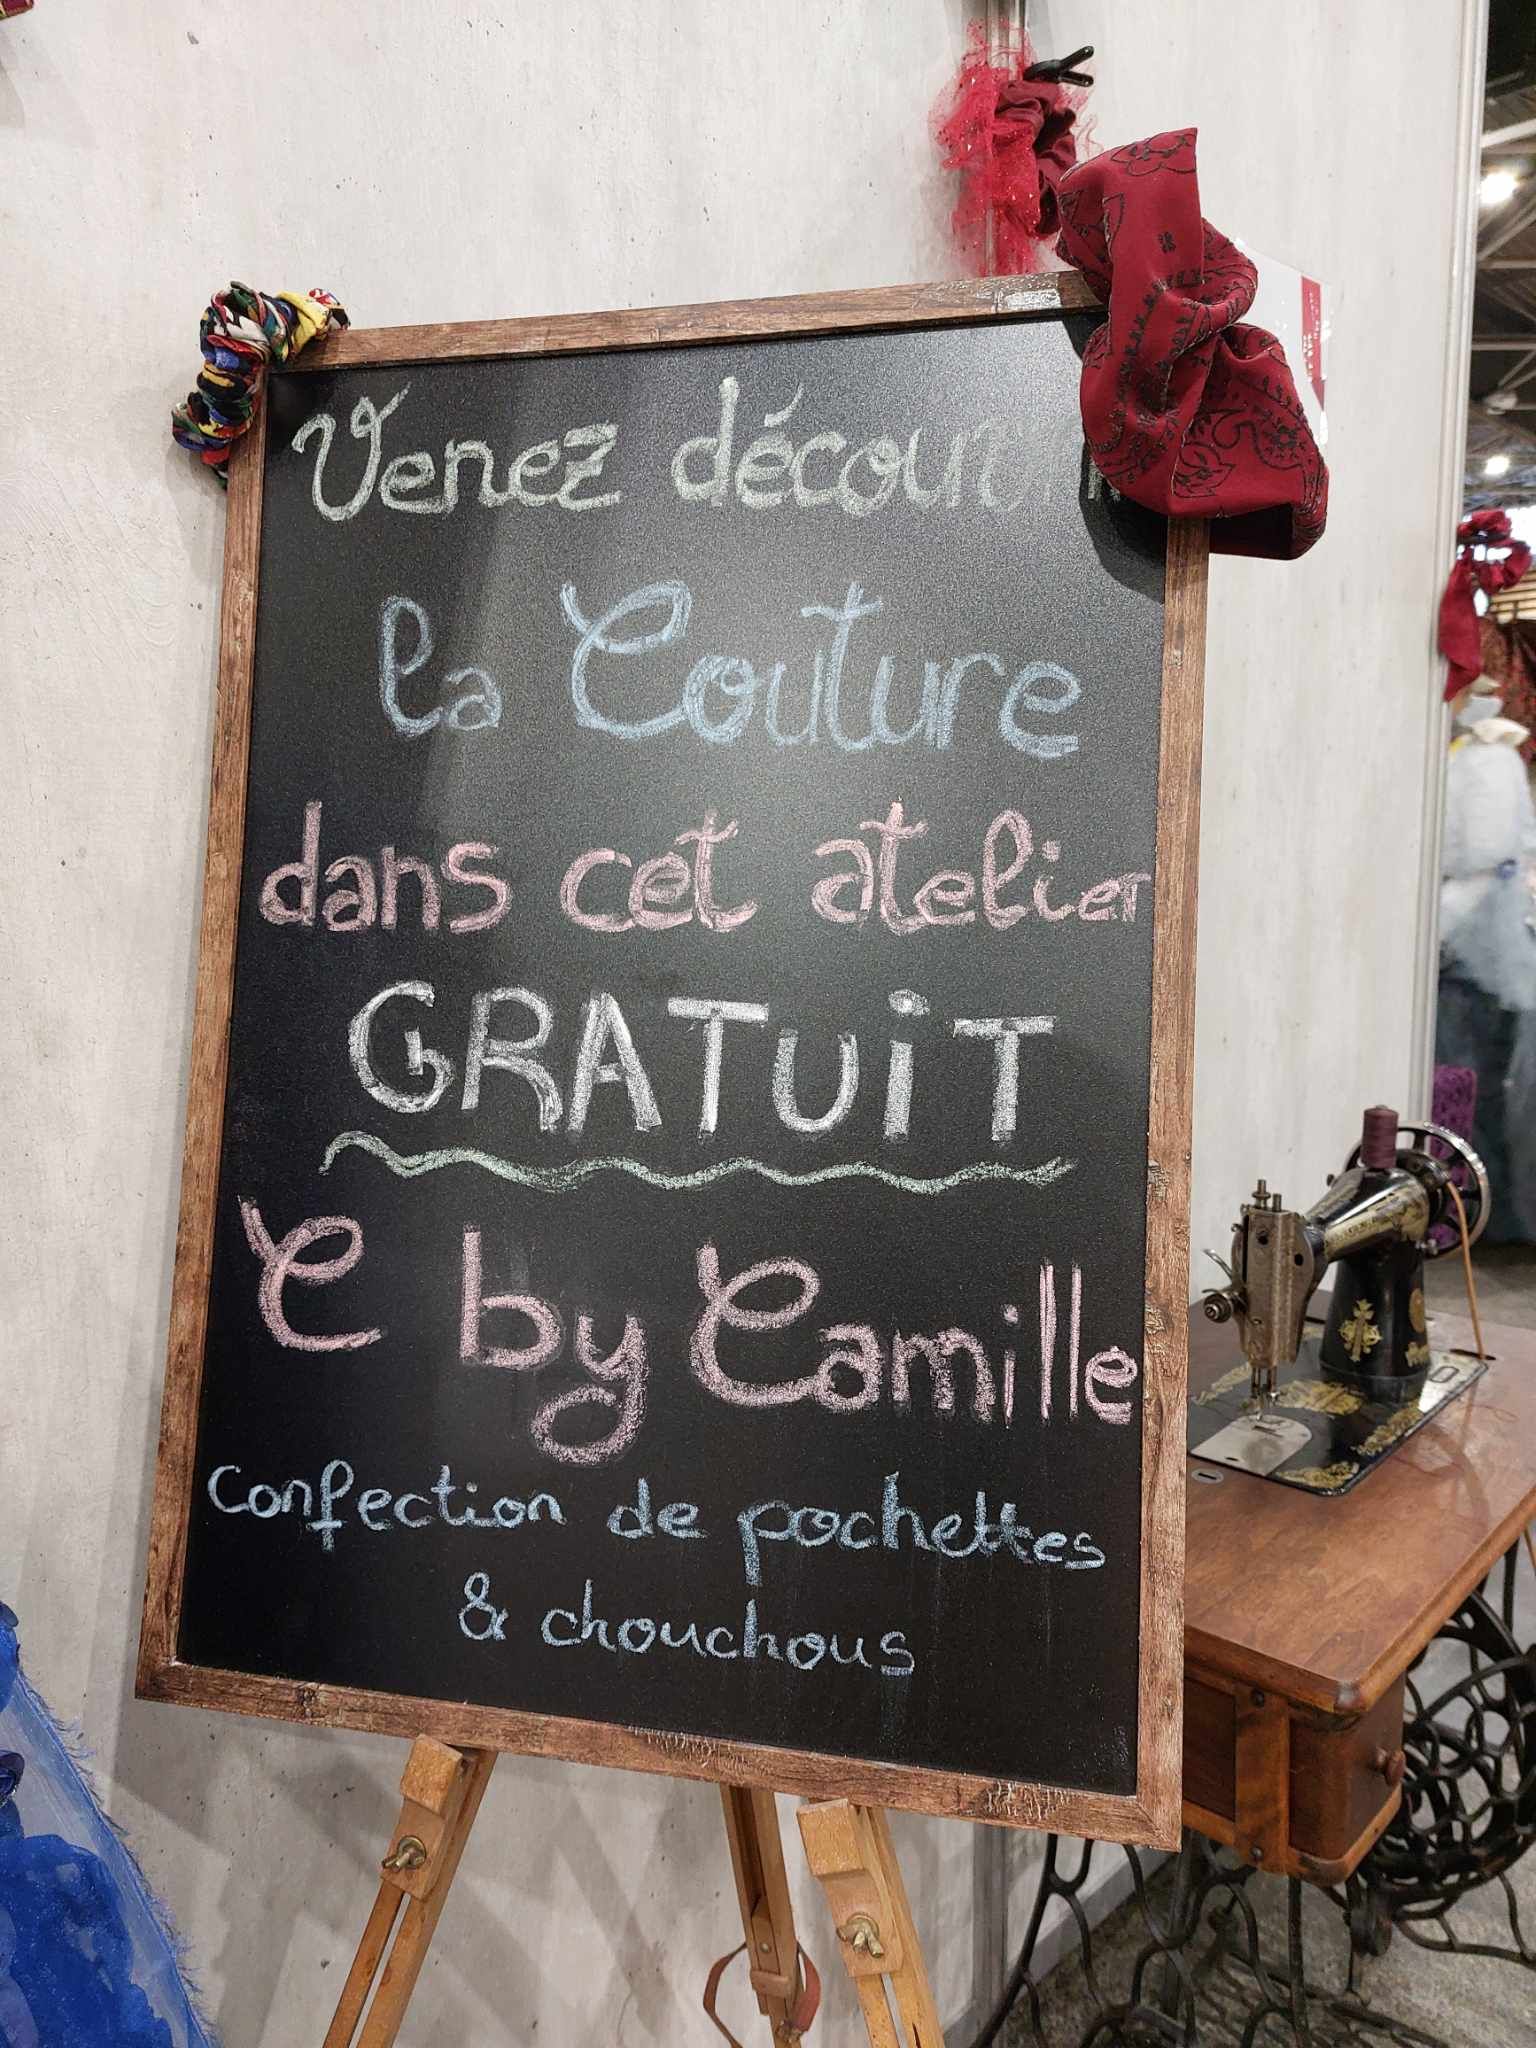 Venez découvrir
la Couture
dans cet atelier
GRATUiT
C by Camille
confection de pochettes
& chouchous